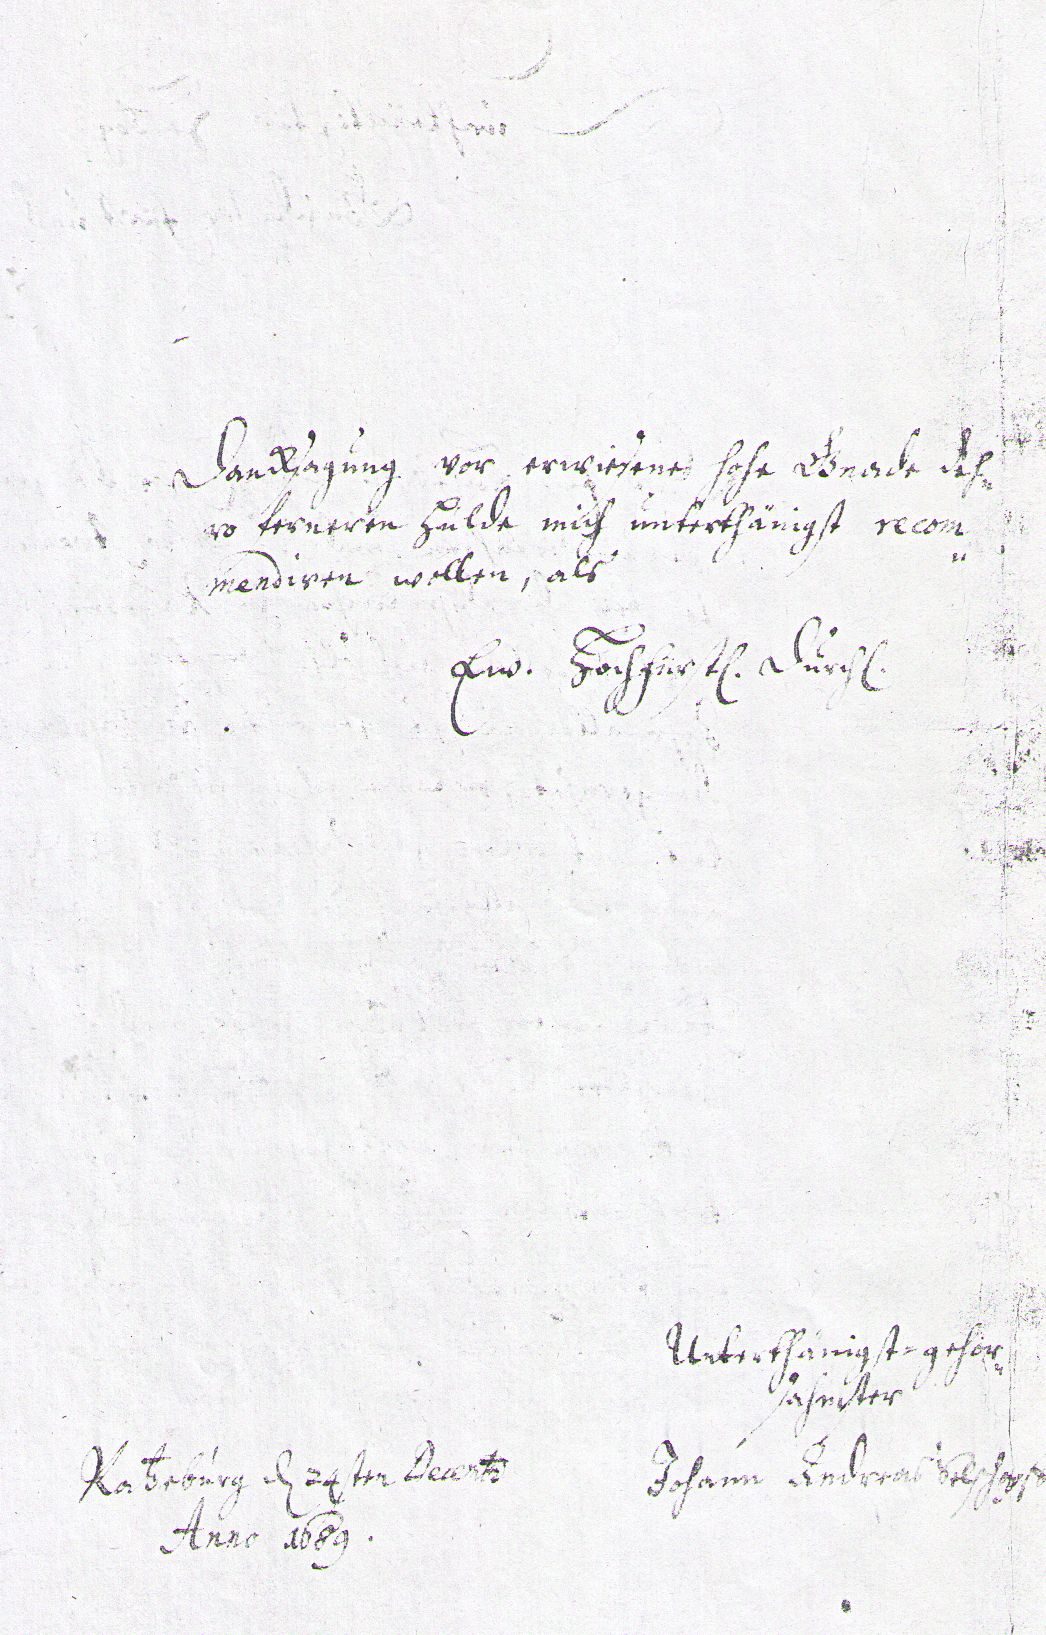 Dancksagung vor erwiesene hohe Gnade deh-
ro ferneren Hulde mich unterthänigst recom
mendiren wollen, als
Ew. Hochfürstl. Durchl.
Unterthänigst-gehor-
sahmster
Ratzeburg d 24sten Decembr
Johann Andreas
Anno 1689.